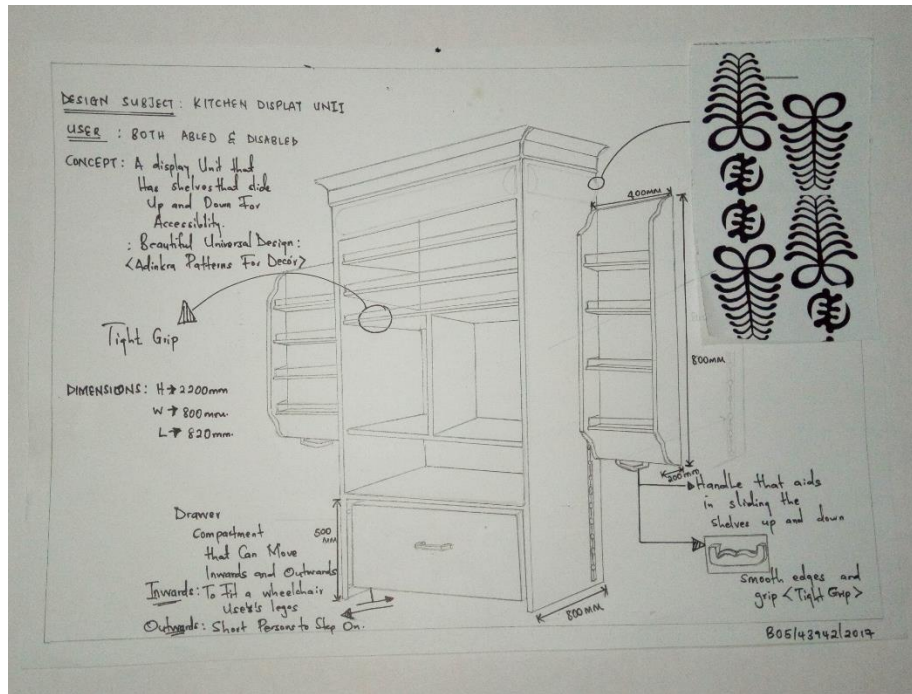 DESIGN SUBJECT : KITCHEN DISPLAY UNIT
USER : BOTH ABLED & DISABLED
CONCEPT : A display Unit that
Has shelves that slide
Up and Down For
Accessiblity.
: Beautiful Universal Design :
<Adinkra Patterns For Decór>
Tight Grip
DIMENSIONS : H → 2200mm
W → 800mm.
L → 820mm.
Drawer
Compartment
that Can Move
Inwards and Outwards
Inwards : To Fit a wheelchair
User's legos
Outwards : Short Persons to Step On.
500
MM
400MM
800MM
200mm
Handle that aids
in sliding the
shelves up and down
Smooth edges and
grip <Tight Grip>
800MM
B05/43942/2017